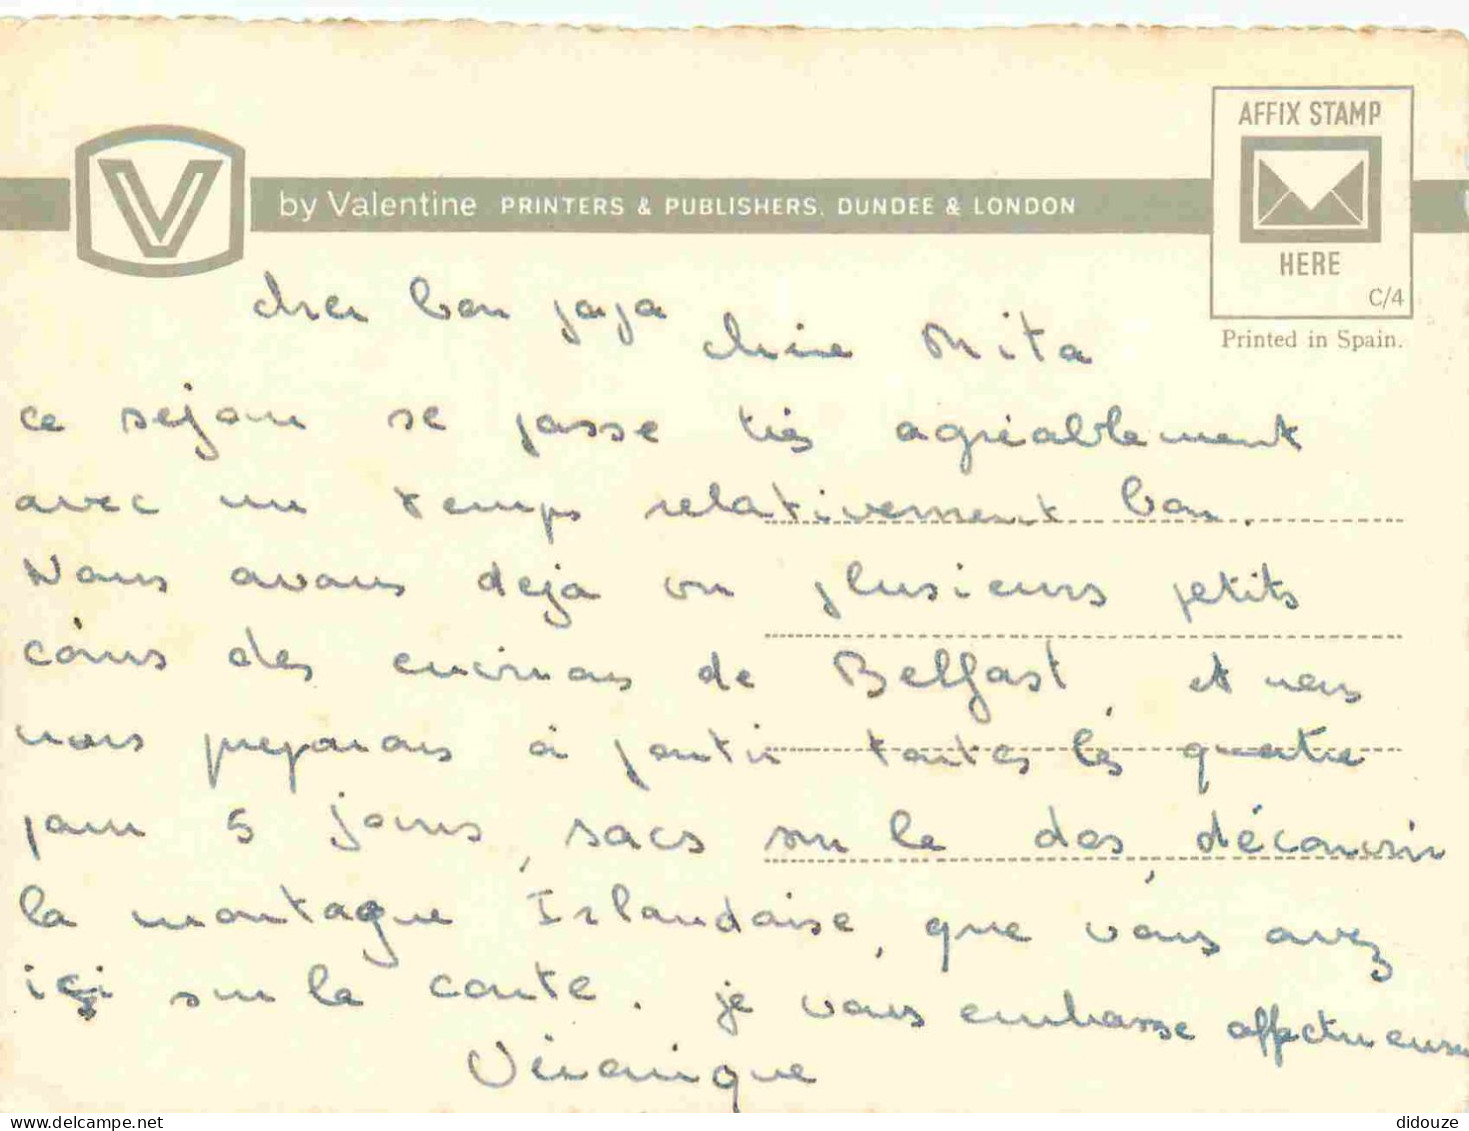 V
by Valentine PRINTERS & PUBLISHERS, DUNDEE & LONDON
AFFIX STAMP
HERE
C/4
Printed in Spain.
cher bon papa
chère Mita
ce séjour se passe très agréablement
avec un temps relativement bon.
Nous avons deja vu plusieurs petits
coins des environs de Belfast, et nous
nous preparons à partir toutes les quatre
pour 5 jours, sacs sur le dos, découvrir
la montagne Irlandaise, que vous avez
içi sur la carte. je vous embrasse affectueusem
Véronique
didouze